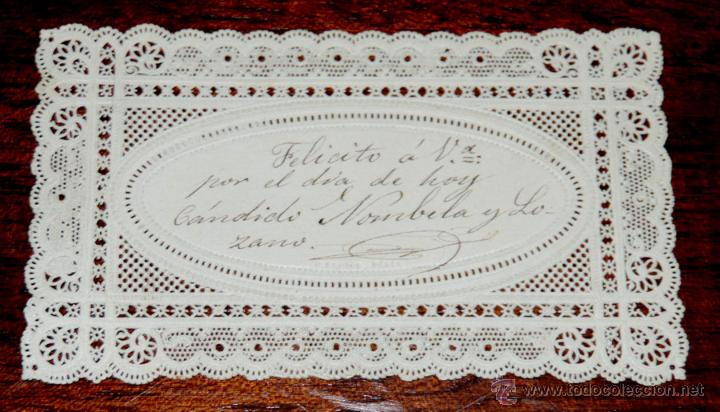 Felicito á V.a
por el dia de hoy
Cándido Nombela y Lo-
zano.
© todocoleccion
www.todocoleccion.net